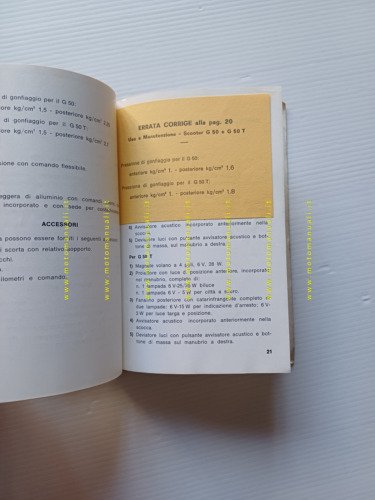 di gonfiaggio per il G 50:
kg/cm² 1,5 - posteriore kg/cm² 1,25
di gonfiaggio per il G 50 T:
kg/cm² 1,5 - posteriore kg/cm² 2,1
sione con comando flessibile.
leggera di alluminio con comandi
incorporato e con sede per
ACCESSORI
possono essere forniti i seguenti
scorta con relativo supporto.
chi.
ilometri e comando.
ERRATA CORRIGE alla pag. 20
Uso e Manutenzione - Scooter G 50 e G 50 T
Pressione di gonfiaggio per il G 50:
anteriore kg/cm² 1. - posteriore kg/cm² 1,6
Pressione di gonfiaggio per il G 50 T:
anteriore kg/cm² 1. - posteriore kg/cm² 1,8
4) Avvisatore acustico incorporato anteriormente nella
scocca.
5) Deviatore luci con pulsante avvisatore acustico e bot-
tone di massa sul manubrio a destra.
Per G 50 T
1) Magnete volano a 4 poli, 6 V, 28 W.
2) Proiettore con luce di posizione anteriore, incorporato
nel manubrio, completo di:
n. 1 lampada 6 V-25/25 W biluce
n. 1 lampada 6 V - 5 W per città a siluro.
3) Fanalino posteriore con catarinfrangente completo di
due lampade: 6 V-15 W per indicazione d'arresto; 6 V-
3 W per luce targa e posizione.
4) Avvisatore acustico incorporato anteriormente nella
scocca.
5) Deviatore luci con pulsante avvisatore acustico e bot-
tone di massa sul manubrio a destra.
21
www.motomanuali.it
www.motomanuali.it
www.motomanuali.it
www.motomanuali.it